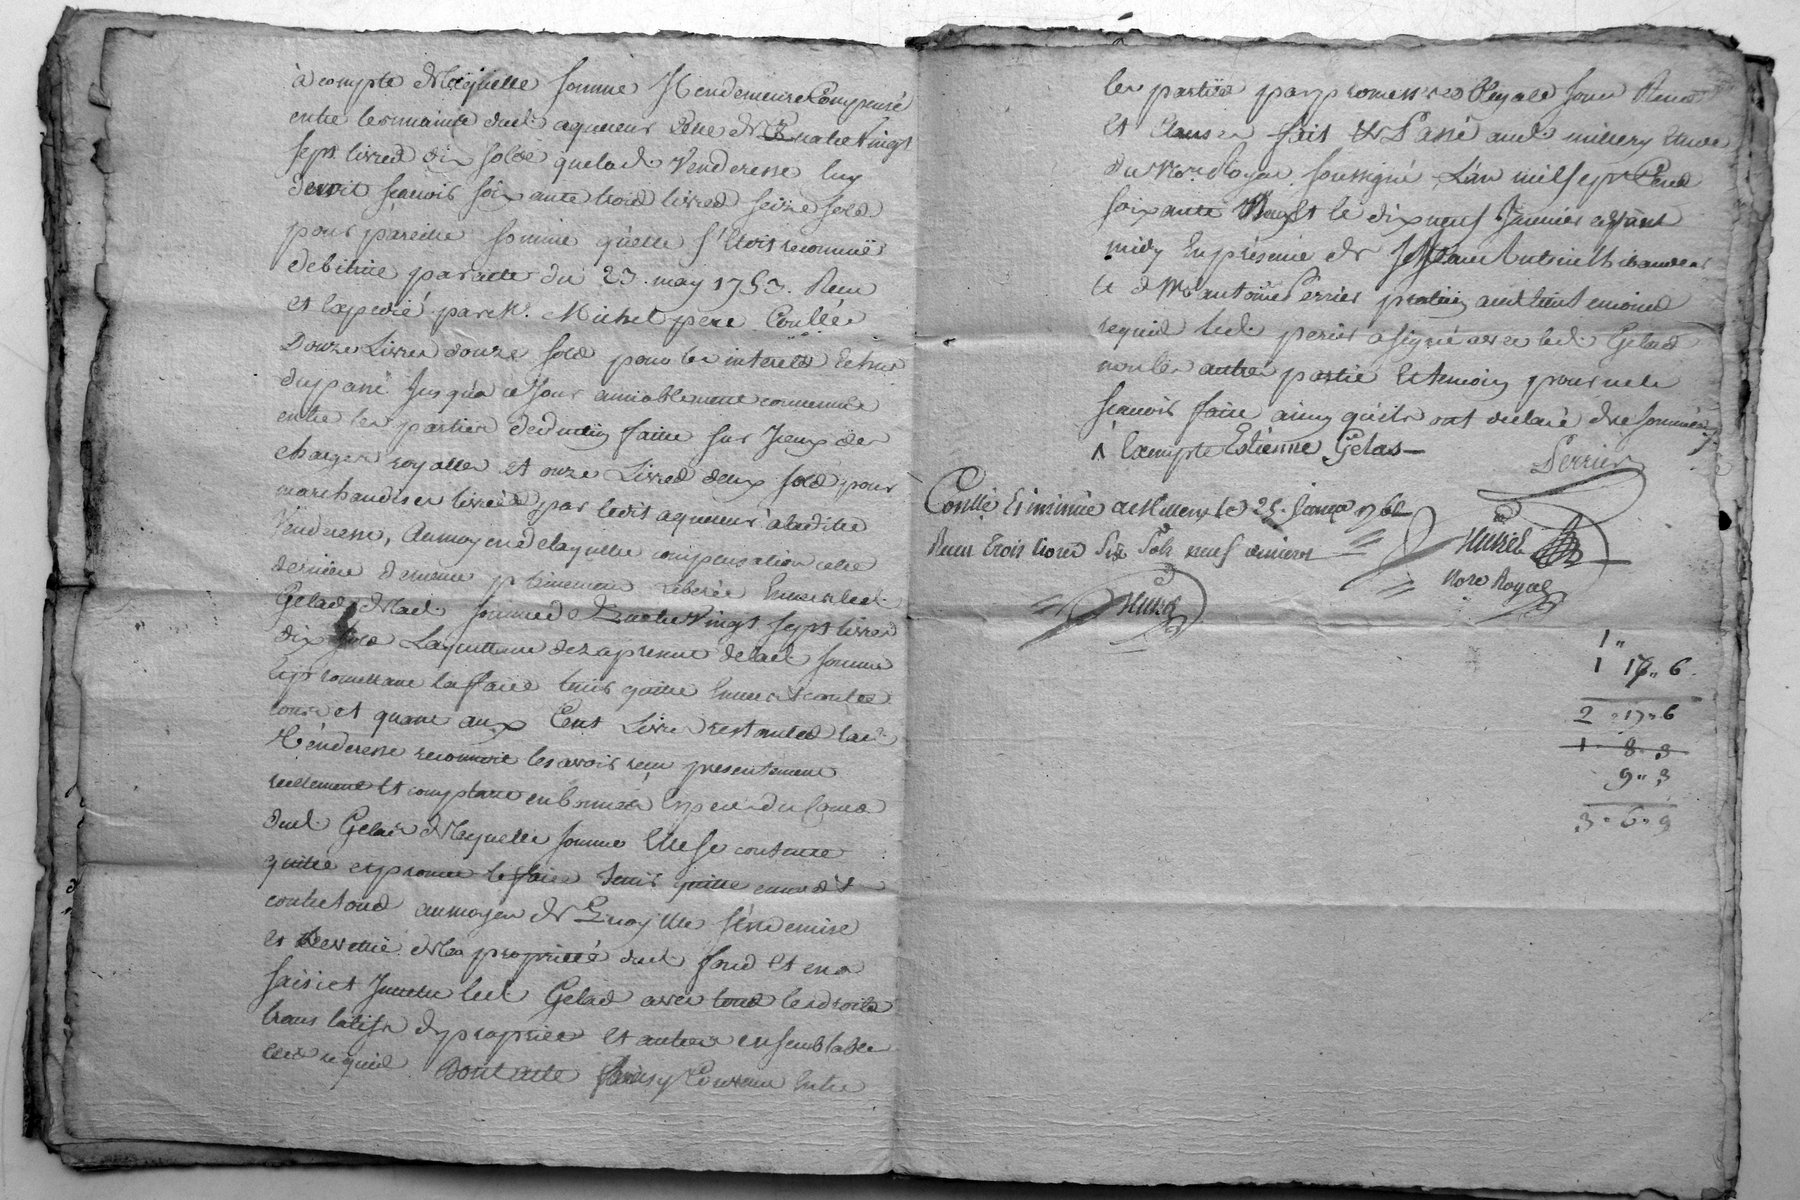 à compte de laquelle somme Il en demeure Compensé
entre les mains dud. aquereur Celle de Quatre Vingt
sept livres dix sols que lad. Venderesse luy
devoit scavoir soixante trois livres seize sols
pour pareille somme qu'elle s'étoit reconnuë
debitrice par acte du 23. may 1753. Recu
et expedié par Me. Michel pere Conllée
Douze Livres douze sols pour les interets Echus
du passé Jusqu'a ce Jour amiablement convenus
entre les parties deduction faitte sur Iceux des
charges royalles et onze Livres deux sols pour
marchandises livrées par ledit aquereur a ladite
Venderesse, Au moyen de laquelle compensation cette
derniere demeure libérée Envers led.
Gelas de lad. somme de Quatre Vingt sept livres
dix sols Laquittant dez a present de lad. somme
Et promettant la faire tenir quitte Envers et contre
tous et quant aux Cent Livres restantes lad.
Vénderesse reconnoit les avoir recu presentement
reellement et comptant en bonnes Especes du Cours
dud. Gelas de laquelle somme Elle se contente
quitte et promet le faire tenir quitte envers et
contre tous au moyen de Quoy Elle s'en demise
et devetuë de la propriété dud. fond et en a
saisi et Invetu led. Gelas avec tous les droits
translatifs de proprieté et autres en semblable
cas requis. Dont acte Ainsy Convenu Entre
les parties par promesses Royale sous Renon
et Clauses fait et Passé aud. millery Etude
du Nore. Royal soussigné L'an mil sept Cens
soixante Deux Et le dix neuf Janvier avant
midy En présence de Sr Jean Antoine
et de Me antoine Perrier praticien aud. lieu temoins
requis led. perrier a signé avec led. Gelas
non les autres partie Et temoin pour ne le
scavoir faire ainsy qu'ils ont declaré de ce sommés
A L'acompte Estienne Gelas
Perrier
Conllé Et insinué a Millery le 25. Janvr 1762
Recu trois livres six sols neuf deniers
Michel
Nore Royal
Michel
1 "
1 17 " 6
2 " 17 " 6
1 8 " 3
9 " 3
3 " 6 " 9